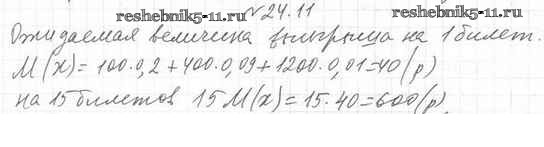 reshebnik5-11.ru
№24.11
reshebnik5-11.ru
Ожидаемая величина выигрыша на 1 билет.
M(x)=100·0,2+400·0,09+1200·0,01=40(р)
на 15 билетов 15M(x)=15·40=600(р)